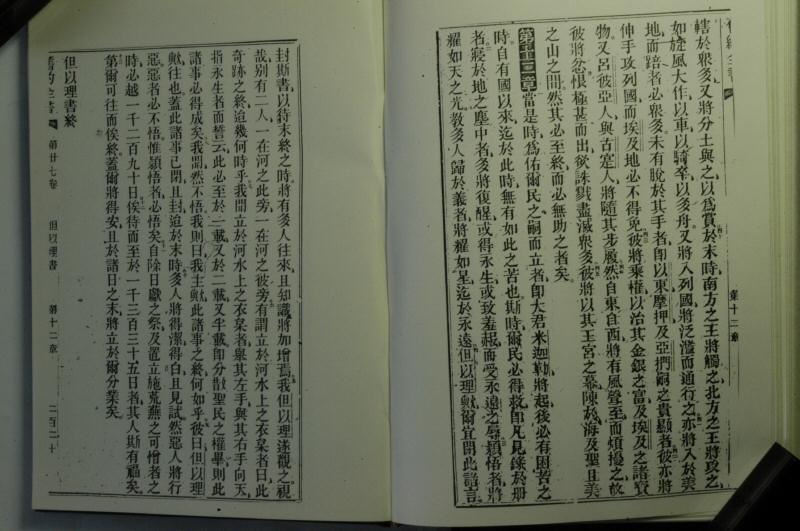 舊約全書
第十二章
轄於眾多又將分土與之以為賞於末時南方之王將觸之北方之王將攻之
如旋風大作以車以騎卒以多舟又將入列國將泛濫而通行之亦將入於美
地而踣者必眾多未有脫於其手者即以東摩押及亞捫嗣之貴顯者彼亦將
伸手攻列國而埃及地必不得免彼將乘權以治其金銀之富及埃及之諸寶
物又呂彼亞人與古寔人將隨其步履然自東自西將有風聲至而煩擾之故
彼將忿恨極甚而出欲誅戮盡滅眾多彼將以其王宮之幕陳於海及聖且美
之山之間然其必至終而必無助之者矣
第十二章當是時為佑爾民之嗣而立者即大君米迦勒將起後必有困苦之
時自有國以來迄於此時無有如此之苦也斯時爾民必得救即凡見錄於册
者寢於地之塵中者多將復醒或得永生或致羞報而受永遠之辱穎悟者將
耀如天之光教多人歸於義者將耀如星迄於永遠但以理歟爾宜閉此諸言
封斯書以待末終之時將有多人往來且知識將加增焉我但以理遂觀之視
哉別有二人一在河之此旁一在河之彼旁有謂立於河水上之衣枲者曰此
奇跡之終迨幾何時乎我聞立於河水上之衣枲者舉其左手與其右手向天
指永生者而誓云此必至於一載又於二載又半載即分散聖民之權畢則此
諸事必得成矣我聞然不悟我則曰我主歟此諸事之終何如乎彼曰但以理
歟往也蓋此諸事已閉且封迨於末時多人將得潔得白且見試然惡人將行
惡惡者必不悟惟穎悟者必悟矣自除日獻之祭及置立施荒蕪之可憎者之
時必越一千二百九十日俟待而至於一千三百三十五日者其人斯有福矣
第爾可往而俟終蓋爾將得安且於諸日之末將立於爾分業矣
但以理書終
舊約全書 第廿七卷 但以理書 第十二章 二百二十